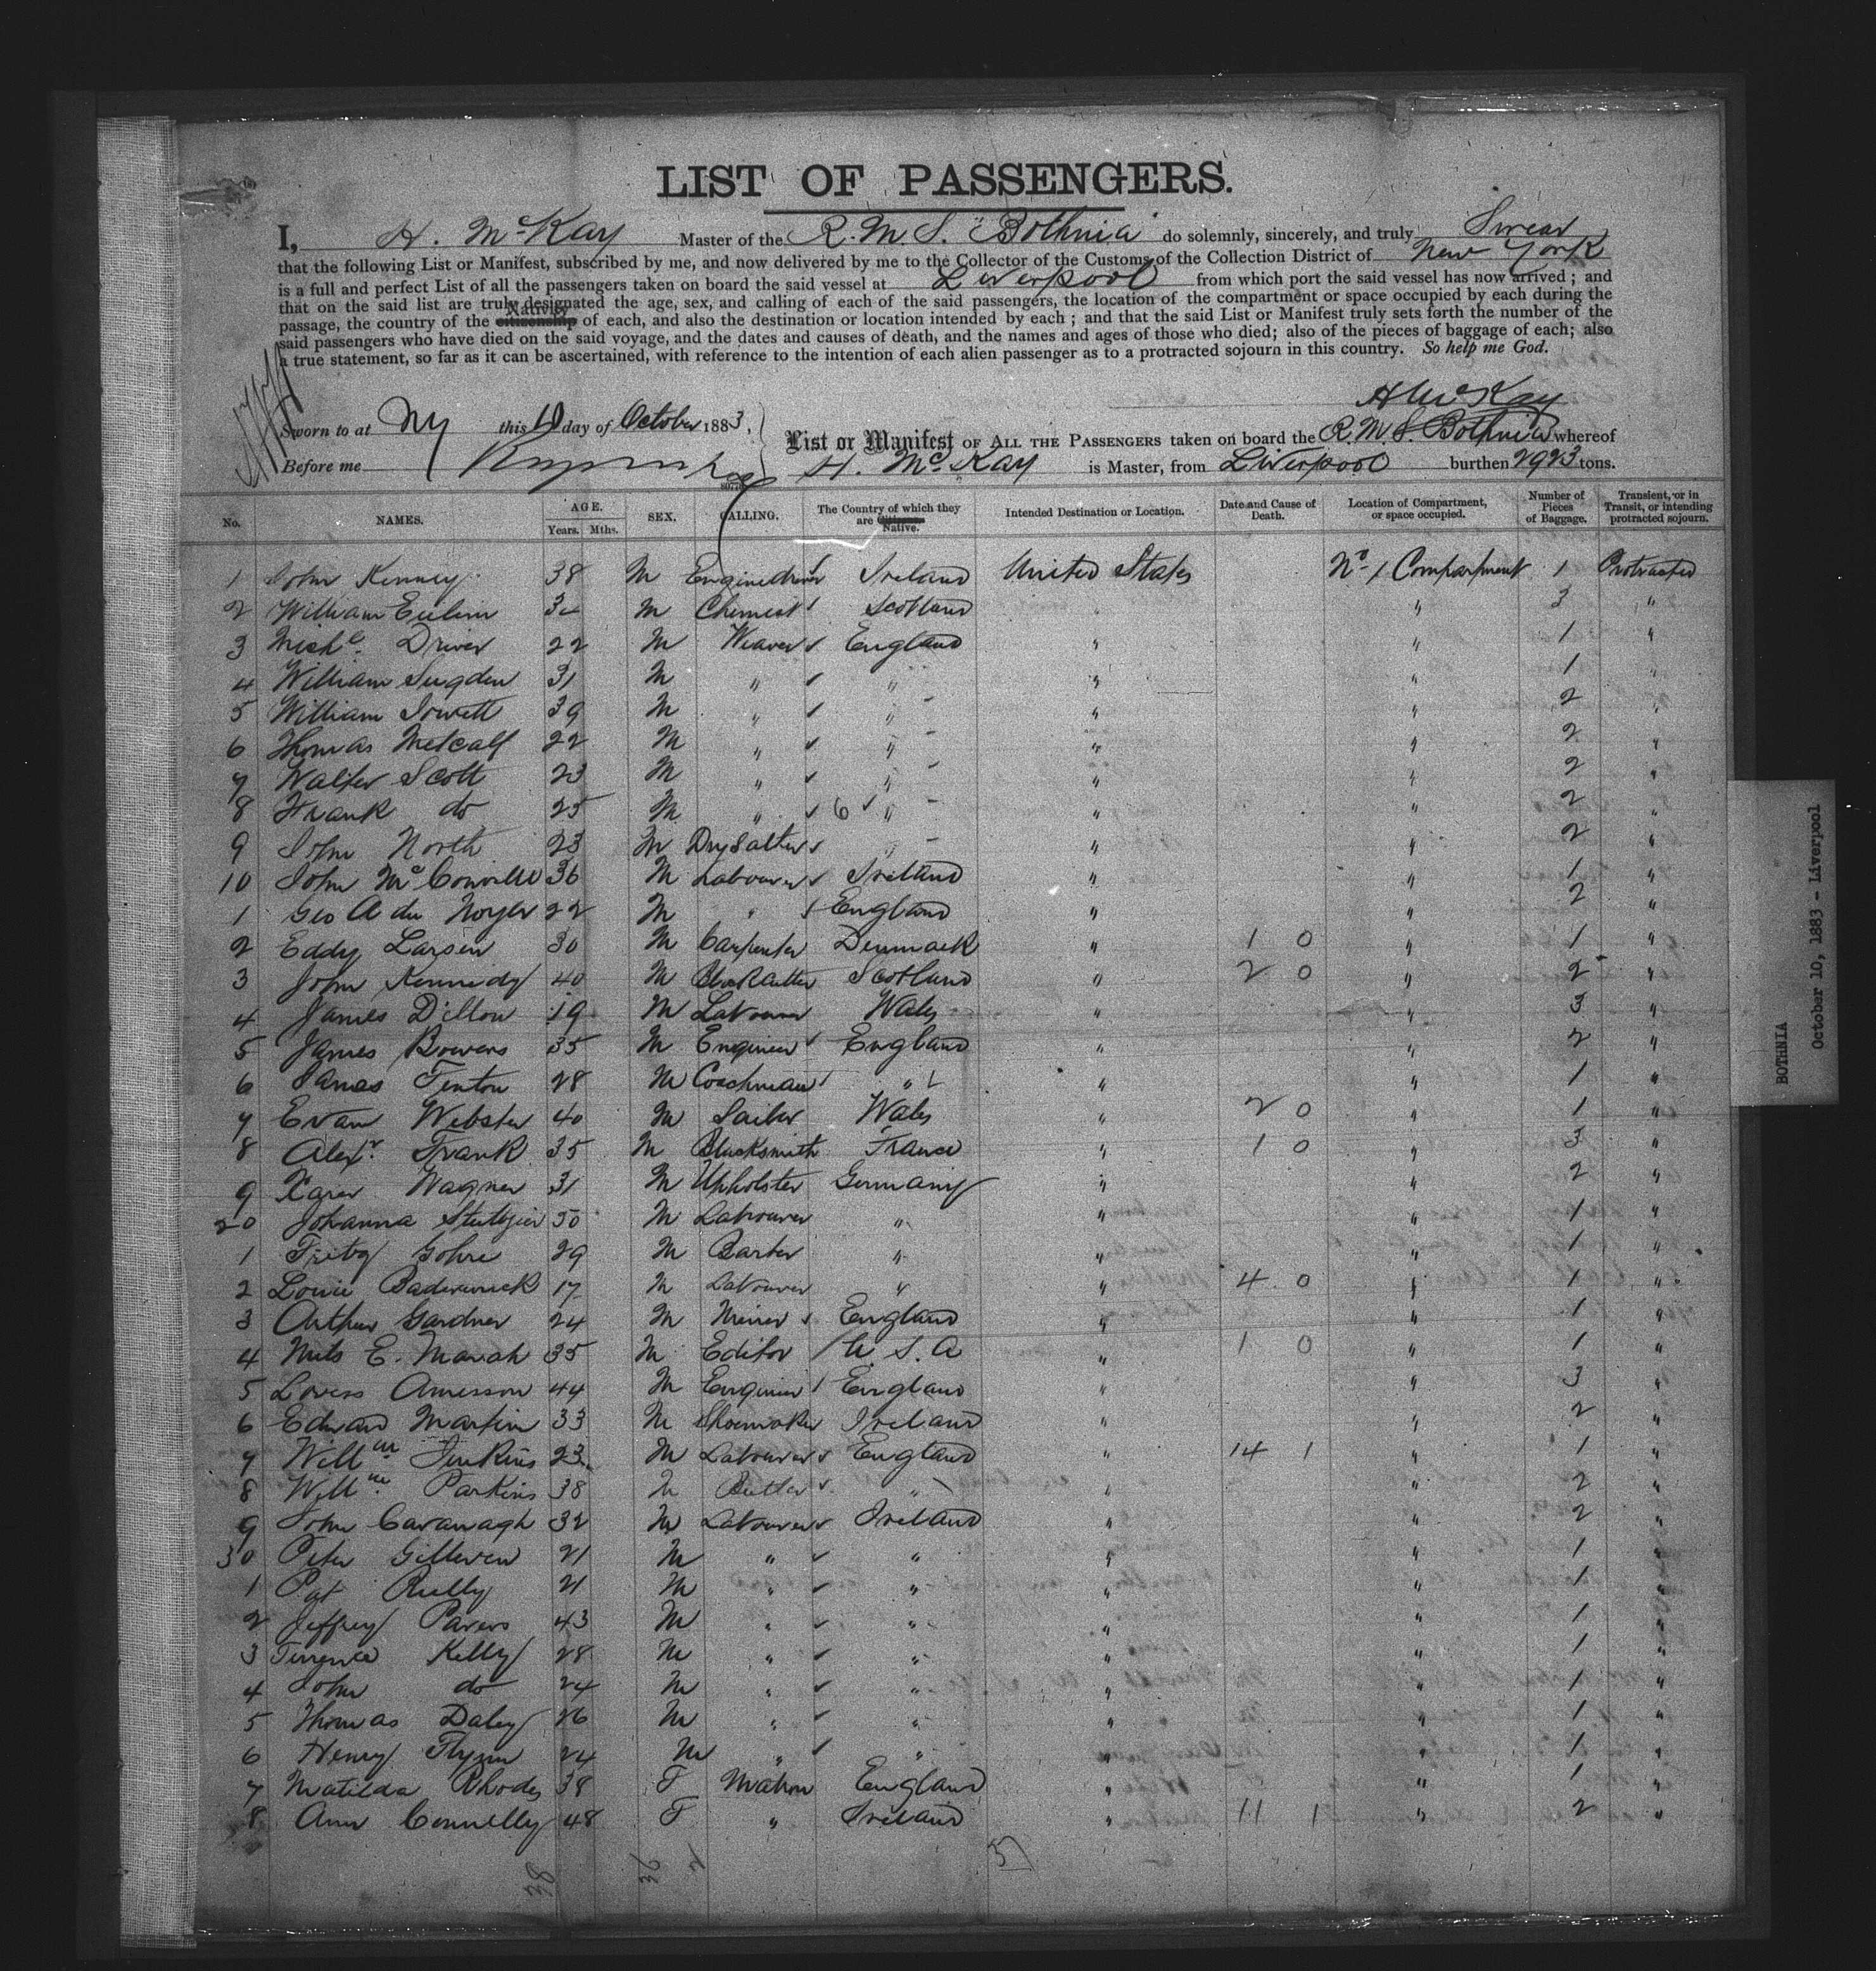 LIST OF PASSENGERS.
I, H. McKay Master of the R.M.S. "Bothnia" do solemnly, sincerely, and truly Swear
that the following List or Manifest, subscribed by me, and now delivered by me to the Collector of the Customs of the Collection District of New York
is a full and perfect List of all the passengers taken on board the said vessel at Liverpool from which port the said vessel has now arrived; and
that on the said list are truly designated the age, sex, and calling of each of the said passengers, the location of the compartment or space occupied by each during the
Nativity
passage, the country of the citizenship of each, and also the destination or location intended by each; and that the said List or Manifest truly sets forth the number of the
said passengers who have died on the said voyage, and the dates and causes of death, and the names and ages of those who died; also of the pieces of baggage of each; also
a true statement, so far as it can be ascertained, with reference to the intention of each alien passenger as to a protracted sojourn in this country. So help me God.
H McKay
Sworn to at NY this 10 day of October 1883,
List or Manifest OF ALL THE PASSENGERS taken on board the R.M.S. Bothnia whereof
Before me
H. McKay is Master, from Liverpool burthen 2923 tons.
No. NAMES. AGE. Years. Mths. SEX. CALLING. The Country of which they are Citizens. Native. Intended Destination or Location. Date and Cause of Death. Location of Compartment, or space occupied. Number of Pieces of Baggage. Transient, or in Transit, or intending protracted sojourn.
1 John Kenney 38 M Enginedriver Ireland United States No 1 Compartment 1 Protracted
2 William M Chemist Scotland " " 3 "
3 Michl. Driver 22 M Weaver England " " 1 "
4 William Sugden 31 M " " " " 1 "
5 William Jowett 39 M " " " " 2 "
6 Thomas Metcalf 22 M " " " " 2 "
7 Walter Scott 23 M " " " " 2 "
8 Frank do 25 M " 6 " " " 2 "
9 John North 23 M Drysalter " " " 2 "
10 John McConville 36 M Labourer Ireland " " 1 "
1 Geo A du Noyer 22 M " England " " 2 "
2 Eddy Larsen 30 M Carpenter Denmark " 1 0 " 1 "
3 John Kennedy 40 M Scotland " 2 0 " 2 "
4 James Dillon 19 M Labourer Wales " " 3 "
5 James Bowers 35 M Engineer England " " 2 "
6 James Fenton 28 M Coachman " " " 1 "
7 Evan Webster 40 M Sailor Wales " 2 0 " 1 "
8 Alexr. Frank 35 M Blacksmith France " 1 0 " 3 "
9 Wagner 31 M Upholster Germany " " 2 "
20 Johanna 50 M Labourer " " " 1 "
1 Fritz Gohre 29 M Barber " " " 1 "
2 Louie 17 M Labourer " " 4 0 " 1 "
3 Arthur Gardner 24 M Miner England " " 1 "
4 E. 35 M Editor U.S.A " 1 0 " 1 "
5 44 M Engineer England " " 3 "
6 Edward Martin 33 M Shoemaker Ireland " " 2 "
7 Willm Jenkins 23 M Labourer England " 14 1 " 1 "
8 Willm. Parkins 38 M Butler " " " 2 "
9 John Cavanagh 32 M Labourer Ireland " " 2 "
30 Peter 21 M " " " " 1 "
1 Pat Reilly 21 M " " " " 1 "
2 Jeffrey 43 M " " " " 1 "
3 Terrence Kelly 28 M " " " " 1 "
4 John do 24 M " " " " 1 "
5 Thomas Daley 26 M " " " " 1 "
6 Henry Flynn 24 M " " " " 1 "
7 Matilda Rhodes 38 F Matron England " " 1 "
8 Ann Connelly 48 F " Ireland " 11 1 " 2 "
38 36
BOTHNIA
October 10, 1883 - Liverpool